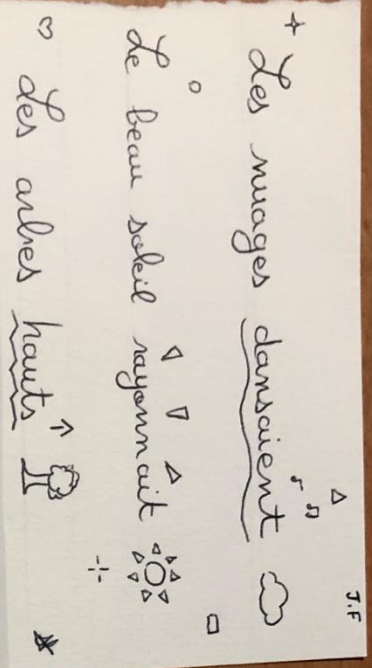 J.F
Les nuages dansaient
Le beau soleil rayonnait
Les arbres hauts